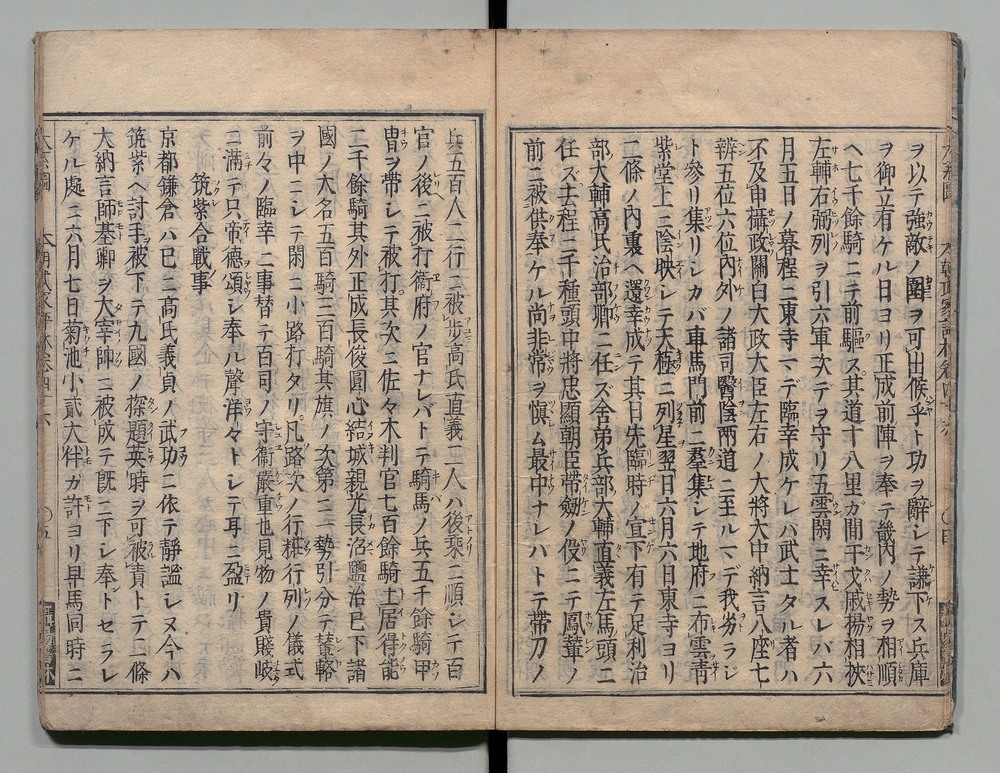 ヲ以テ強敵ノ圍ヲ可出候乎ト功ヲ辭シテ謙下ス兵庫
ヲ御立有ケル日ヨリ正成前陣ヲ奉テ畿内ノ勢ヲ相順
ヘ七千餘騎ニテ前驅ス其道十八里ガ間干戈戚楊相挾
左輔右弼列ヲ引六軍次テヲ守リ五雲閑ニ幸スレバ六
月五日ノ暮程ニ東寺マデ臨幸成ケレハ武士タル者ハ
不及申攝政關白大政大臣左右ノ大將大中納言八座七
辨五位六位内外ノ諸司醫陰兩道ニ至ルマデ我劣ラシ
ト參リ集リシカバ車馬門前ニ羣集シテ地府ニ布雲靑
紫堂上ニ陰映シテ天極ニ列星翌日六月六日東寺ヨリ
二條ノ内裏ヘ還幸成テ其日先臨時ノ宣下有テ足利治
部大輔高氏治部卿ニ任ズ舍弟兵部大輔直義左馬頭ニ
任ズ去程ニ千種頭中將忠顯朝臣帶劔ノ役ニテ鳳輦ノ
前ニ被供奉ケル尚非常ヲ愼ム最中ナレバトテ帶刀ノ
兵五百人二行ニ被歩高氏直義二人ハ後乘ニ順シテ百
官ノ後ニ被打衞府ノ官ナレバトテ騎馬ノ兵五千餘騎甲
冑ヲ帶シテ被打其次ニ佐々木判官七百餘騎土居得能
二千餘騎其外正成長俊圓心結城親光長沼鹽治已下諸
國ノ大名五百騎三百騎其旗ノ次第ニ一勢引分テ輦輅
ヲ中ニシテ閑ニ小路打タリ凡路次ノ行粧行列ノ儀式
前々ノ臨幸ニ事替テ百司ノ守衞嚴重也見物ノ貴賤岐
ニ滿テ只帝德頌シ奉ル聲洋々トシテ耳ニ盈リ
筑紫合戰事
京都鎌倉ハ已ニ高氏義貞ノ武功ニ依テ靜謐シヌ今ハ
筑紫ヘ討手被下テ九國ノ探題英時ヲ可被責トテ二條
大納言師基卿ヲ大宰帥ニ被成テ旣ニ下シ奉ントセラレ
ケル處ニ六月七日菊池小貳大伴ガ許ヨリ早馬同時ニ